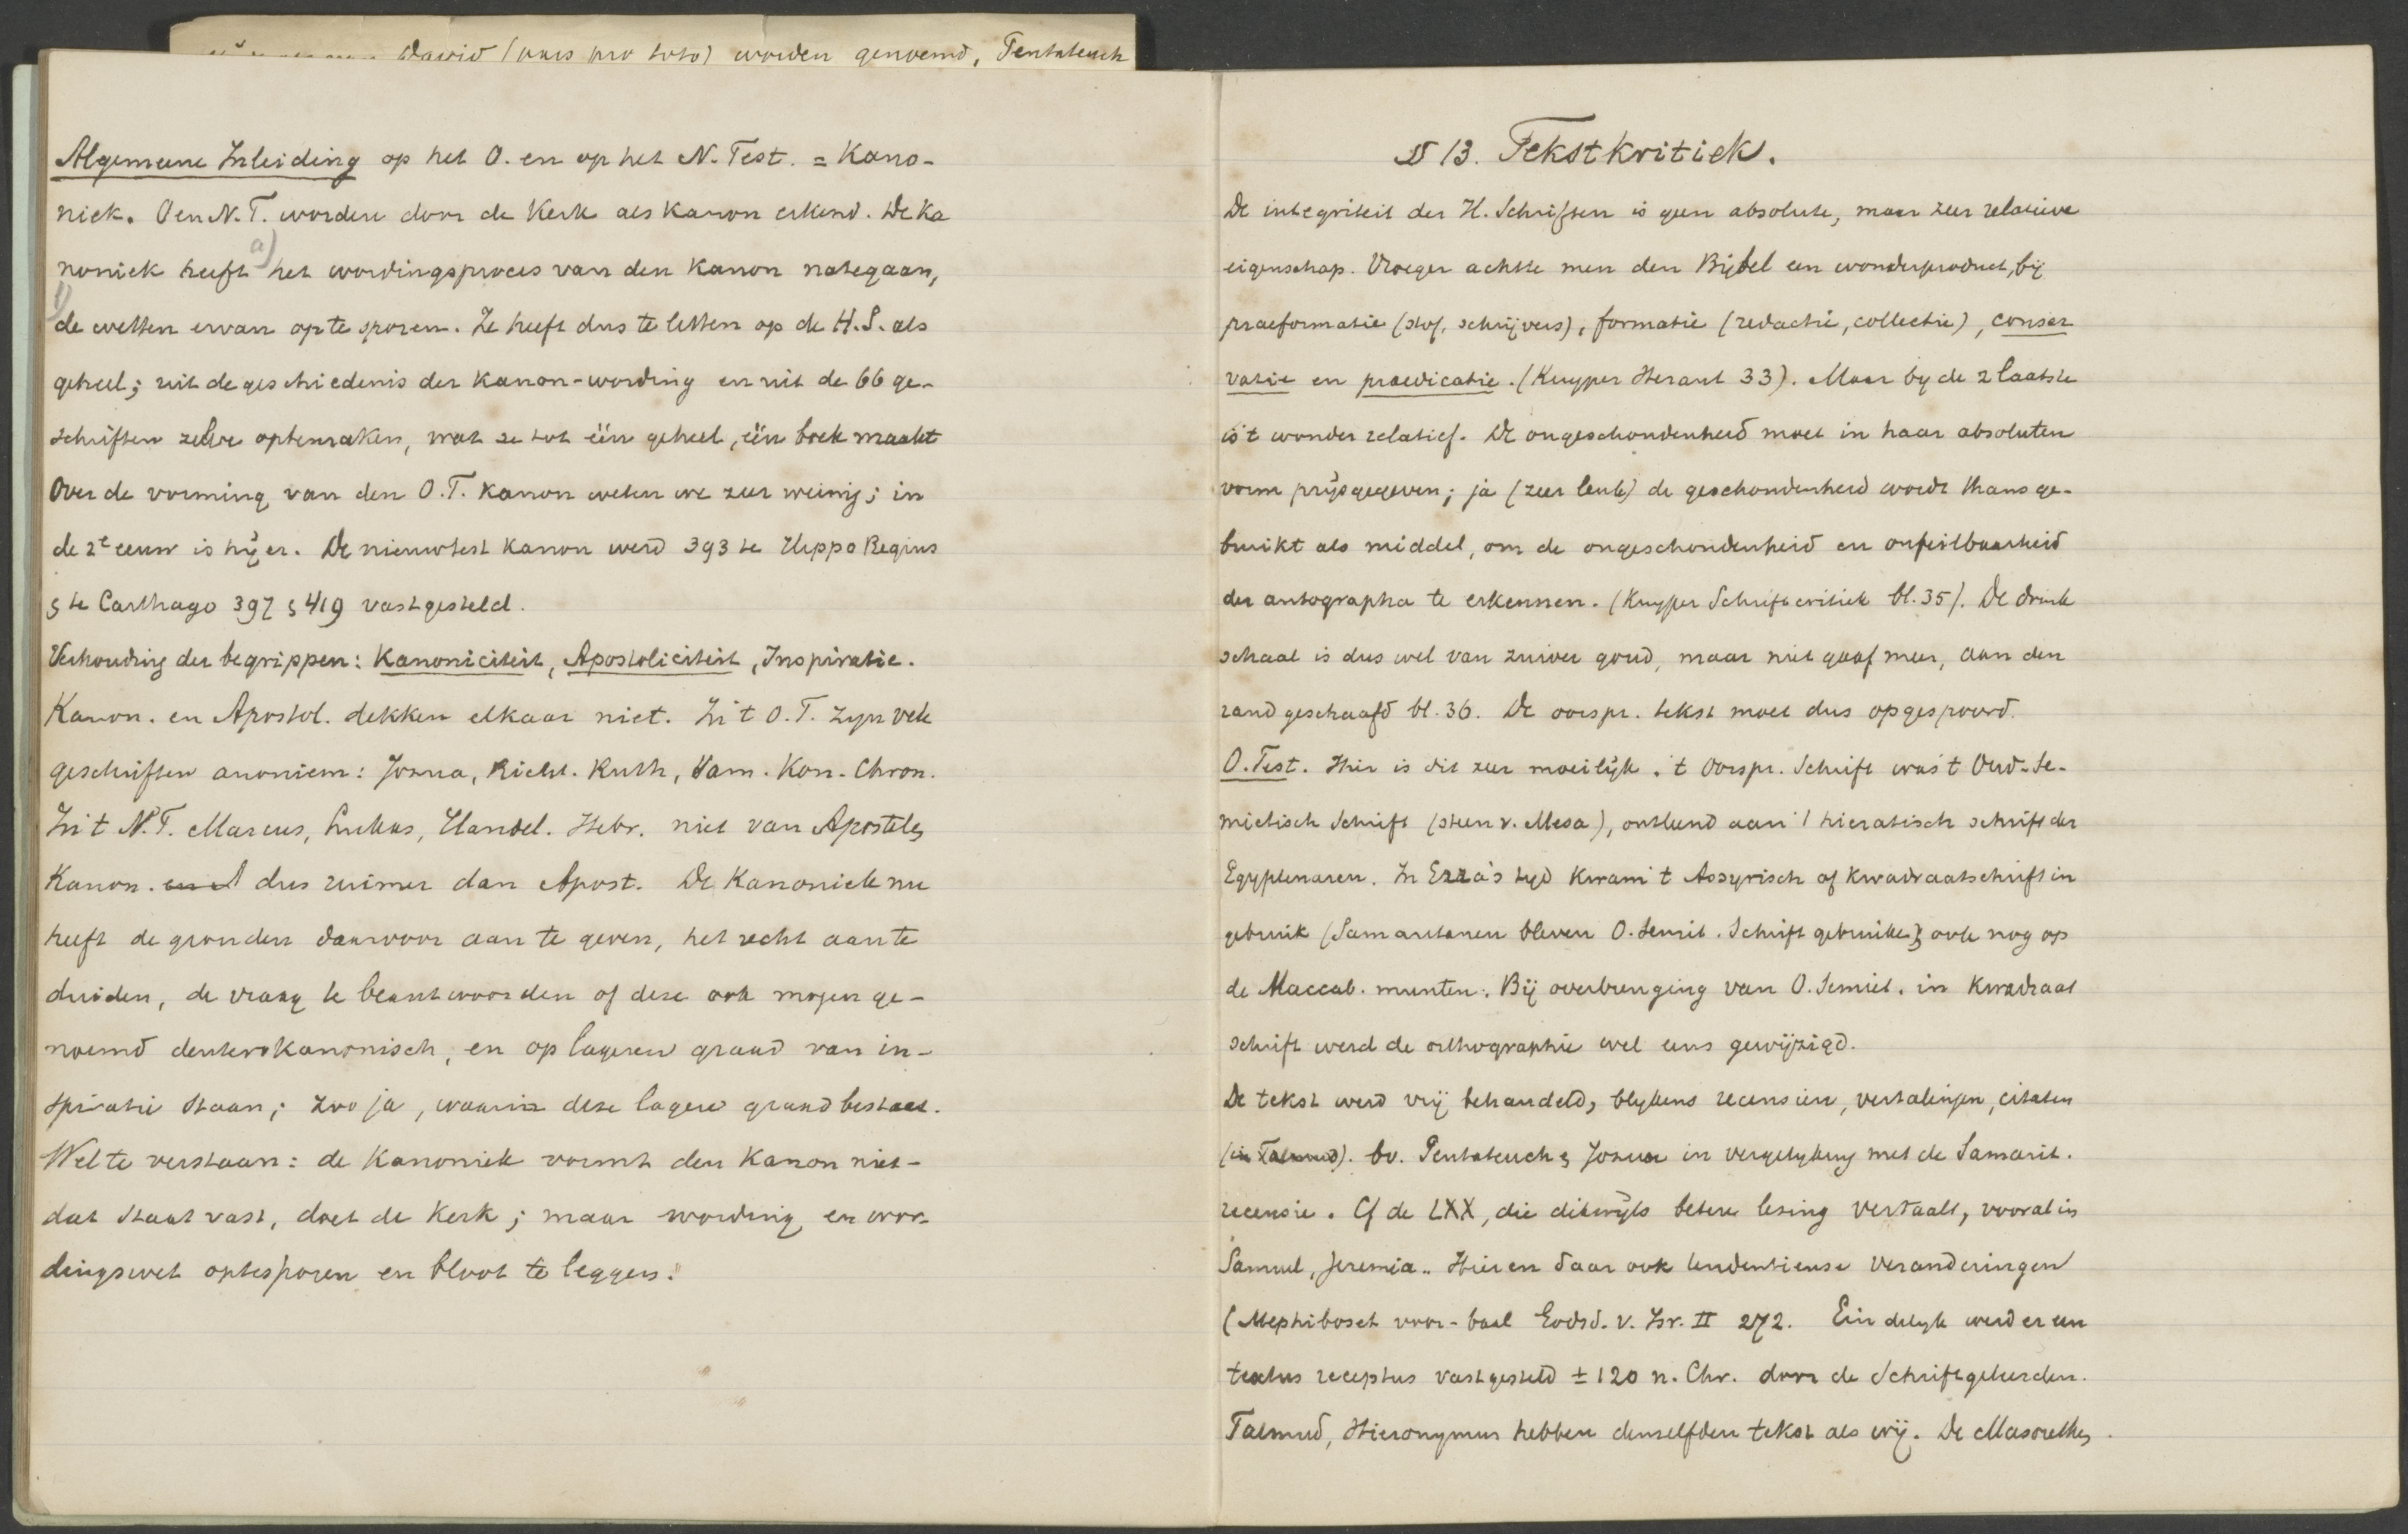 David (pars pro toto) worden genoemd, Pentateuch
Algemeene Inleiding op het O. en op het N. Test. = Kano-
niek. O en N. T. worden door de Kerk als Kanon erkend. De Ka
noniek heeft a) het wordingsproces van den Kanon nategaan,
1) de wetten ervan opte sporen. Ze heeft dus te letten op de H.S. als
geheel; uit de geschiedenis der Kanon-wording en uit de 66 ge-
schriften zelve optemaken, wat ze tot één geheel, één boek maakt
Over de vorming van den O.T. Kanon weten we zeer weinig; in
de 2e eeuw is hij er. De nieuwtest Kanon werd 393 te Hippo Regius
& te Carthago 397 & 419 vastgesteld.
Verhouding der begrippen: Kanoniciteit, Apostoliciteit, Inspiratie.
Kanon. en Apostol. dekken elkaar niet. In 't O.T. zyn vele
geschriften anoniem: Jozua, Richt. Ruth, Sam. Kon. Chron.
In 't N.T. Marcus, Lukas, Handel. Hebr. niet van Apostels
Kanon. en A dus ruimer dan Apost. De Kanoniek nu
heeft de gronden daarvoor aan te geven, het recht aan te
duiden, de vraag te beantwoorden of deze ook mogen ge-
noemd deuterokanonisch, en op lageren graad van in-
spiratie staan; zoo ja, waarin deze lagere graad bestaat.
Wel te verstaan: de Kanoniek vormt den Kanon niet-
dat staat vast, doet de Kerk; maar wording en wor-
dingswet optesporen en bloot te leggen.
§ 13. Tekstkritiek.
De integriteit der H. Schriften is geen absolute, maar zeer relatieve
eigenschap. Vroeger achtte men den Bijbel een wonderproduct, bij
praeformatie (stof, schrijvers), formatie (redactie, collectie), conser
vatie en praedicatie. (Kuyper Heraut 33). Maar by de 2 laatste
is 't wonder relatief. De ongeschondenheid moet in haar absoluten
vorm prijsgegeven; ja (zeer leuk) de geschondenheid wordt thans ge-
bruikt als middel, om de ongeschondenheid en onfeilbaarheid
der autographa te erkennen. (Kuyper Schriftcritiek bl. 35). De drink
schaal is dus wel van zuiver goud, maar niet gaaf meer, aan den
rand geschaafd bl. 36. De oorspr. tekst moet dus opgespoord.
O. Test. Hier is dit zeer moeilijk. 't Oorspr. Schrift was 't Oud-Se-
mietisch Schrift (steen v. Mesa), ontleend aan 't hieratisch schrift der
Egyptenaren. In Ezra's tyd kwam 't Assyrisch of Kwadraatschrift in
gebruik (Samaritanen bleven O. Semit. Schrift gebruiken) & ook nog op
de Maccab. munten. Bij overbrenging van O. Semiet. in Kwadraat
schrift werd de orthographie wel eens gewijzigd.
De tekst werd vrij behandeld, blykens recensien, vertalingen, citaten
(in Talmud). bv. Pentateuch & Jozua in vergelyking met de Samarit.
recensie. Cf de LXX, die dikwijls betere lezing vertaalt, vooral in
Samuel, Jeremia.. Hier en daar ook tendentieuse veranderingen
(Mephiboset voor -baal Godsd. v. Isr. II 272. Eindelyk werd er een
textus receptus vastgesteld ± 120 n. Chr. door de Schriftgeleerden.
Talmud, Hieronymus hebben denzelfden tekst als wij. De Masorethen